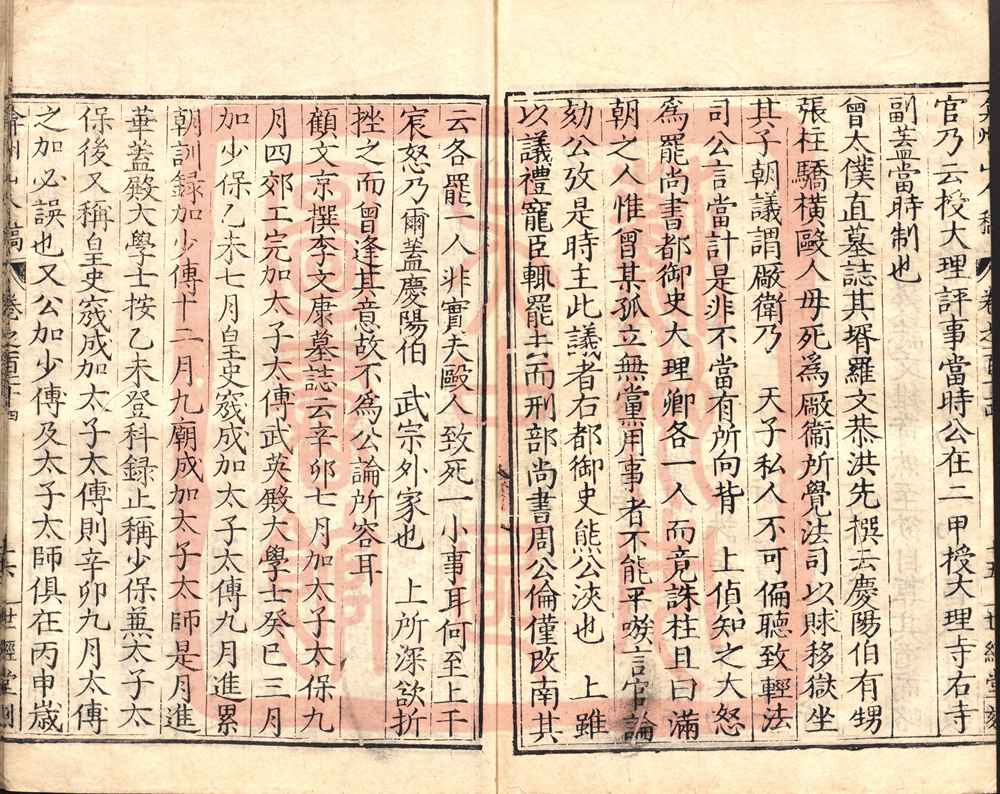 官乃云授大理評事當時公在二甲授大理寺右寺
副蓋當時制也
曾太僕直墓誌其壻羅文恭洪先撰云慶陽伯有甥
張柱驕橫毆人母死爲厰衞所覺法司以賕移獄坐
其子朝議謂厰衛乃 天子私人不可偏聽致輕法
司公言當計是非不當有所向背 上偵知之大怒
爲罷尚書都御史大理卿各一人而竟誅柱且曰滿
朝之人惟曾某孤立無黨用事者不能平嗾言官論
劾公攷是時主此議者右都御史熊公浹也 上雖
以議禮寵臣輒罷去而刑部尚書周公倫僅改南其
云各罷一人非實夫毆人致死一小事耳何至上干
宸怒乃爾蓋慶陽伯 武宗外家也 上所深欲折
挫之而曾逢其意故不爲公論所容耳
顧文京撰李文康墓誌云辛卯七月加太子太保九
月四郊工完加太子太傅武英殿大學士癸巳三月
加少保乙未七月皇史宬成加太子太傅九月進累
朝訓録加少傅十二月九廟成加太子太師是月進
華蓋殿大學士按乙未登科録止稱少保兼太子太
保後又稱皇史宬成加太子太傅則辛卯九月太傅
之加必誤也又公加少傅及太子太師俱在丙申歲
弇州山人稿 卷之
世經堂刻